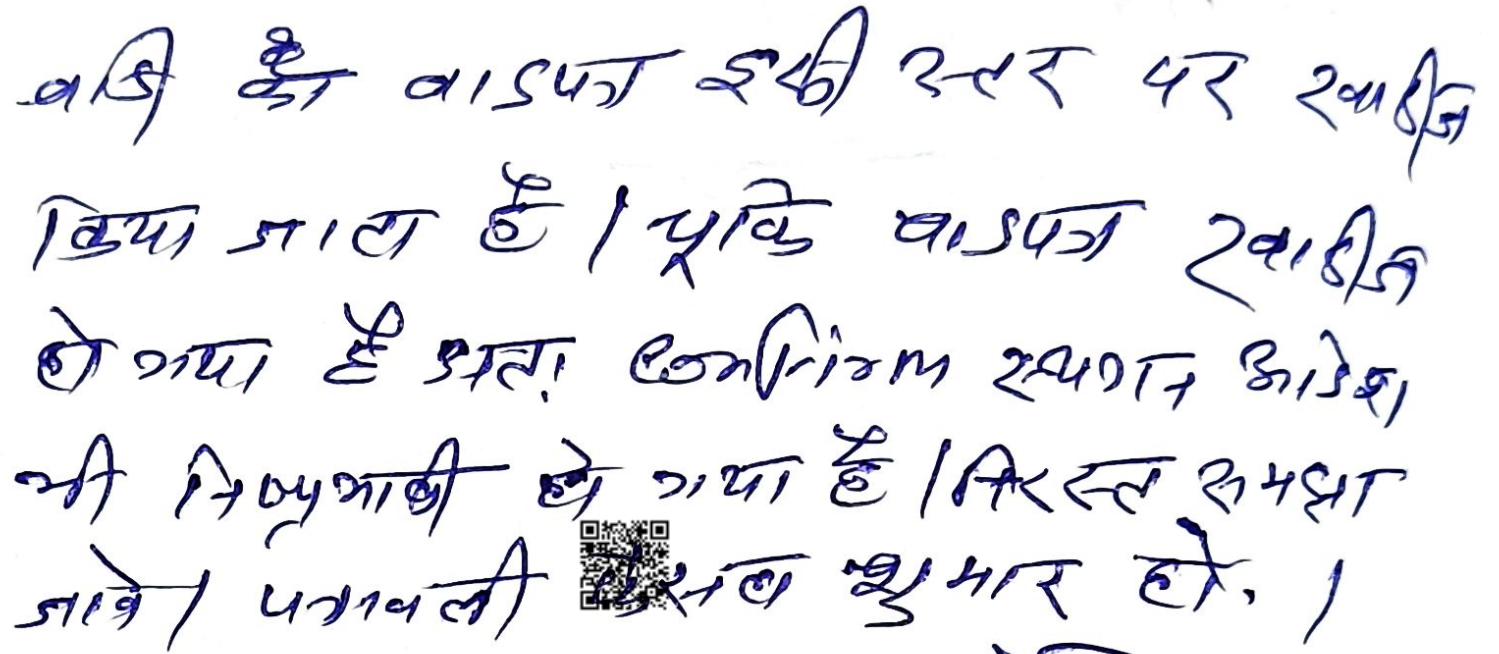 वादी का वादपत्र इसी स्तर पर खारीज
किया जाता है। चूकि वादपत्र खारीज
हो गया है अतः Confirm स्थगन आदेश
भी निष्प्रभावी हो गया है। निरस्त समझा
जावे। पत्रावली फैसल शुमार हो.।